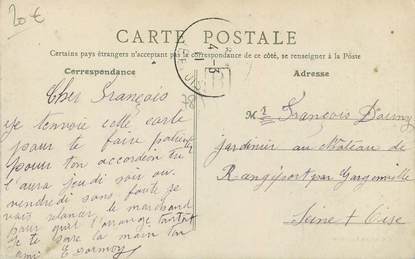 20 €
CARTE POSTALE
Certains pays étrangers n'acceptant pas la correspondance de ce côté, se renseigner à la Poste
Correspondance
Adresse
Cher François
je t'envoie cette carte
pour te faire patienter
pour ton accordéon tu
l'aura jeudi soir ou
vendredi sans faute je
vais relancer le marchand
pour qu'il l'arrange tantot
je te sere la main ton
ami
Mr François
jardinier au château de
Rangiport par Gargenville
Seine & Oise